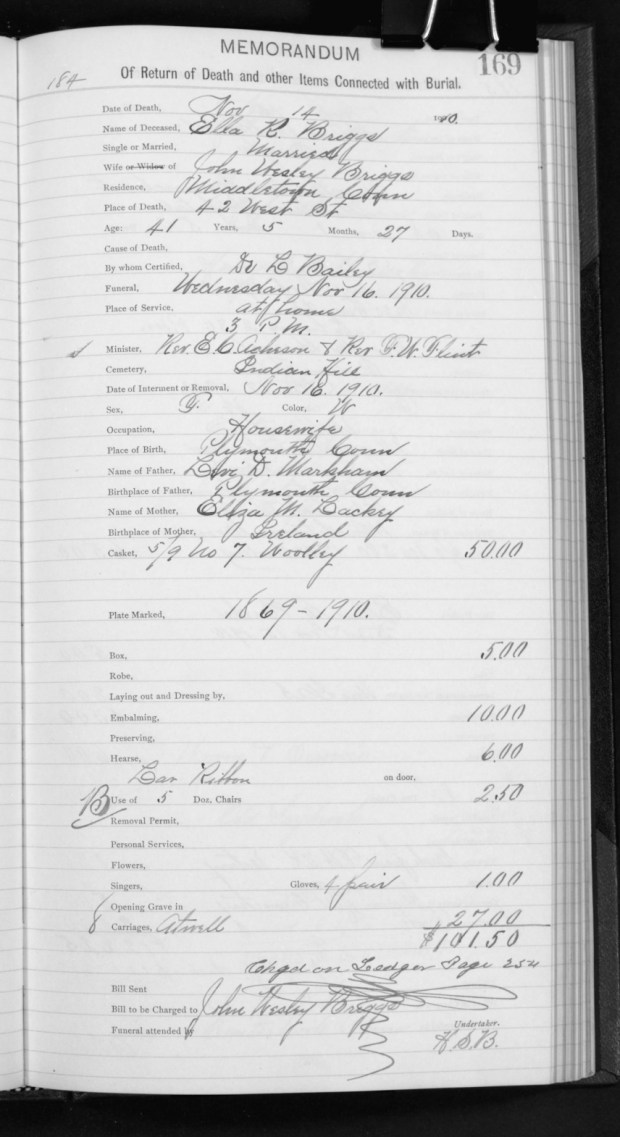 MEMORANDUM
169
184
Of Return of Death and other Items Connected with Burial.
Date of Death, Nov 14 1910.
Name of Deceased, Ella R. Briggs
Single or Married, Married
Wife or Widow of John Wesley Briggs
Residence, Middletown Conn
Place of Death, 42 West St
Age: 41 Years, 5 Months, 27 Days.
Cause of Death,
By whom Certified, Dr L Bailey
Funeral, Wednesday Nov 16. 1910.
Place of Service, at home
3 P.M.
Minister, Rev. E. C. Acheson & Rev F. W. Flint
Cemetery, Indian Hill
Date of Interment or Removal, Nov 16. 1910.
Sex, F. Color, W
Occupation, Housewife
Place of Birth, Plymouth Conn
Name of Father, Levi D. Markham
Birthplace of Father, Plymouth Conn
Name of Mother, Eliza M. Lackey
Birthplace of Mother, Ireland
Casket, 5/9 No 7. Woolley 50.00
Plate Marked, 1869-1910.
Box, 5.00
Robe,
Laying out and Dressing by,
Embalming, 10.00
Preserving,
Hearse, 6.00
Ribbon on door,
B Use of 5 Doz. Chairs 2.50
Removal Permit,
Personal Services,
Flowers,
Singers, Gloves, 4 pair 1.00
Opening Grave in
8 Carriages, Atwell 27.00
$101.50
Chgd on Ledger Page 254
Bill Sent
Bill to be Charged to John Wesley Briggs
Funeral attended by
Undertaker.
H.S.B.